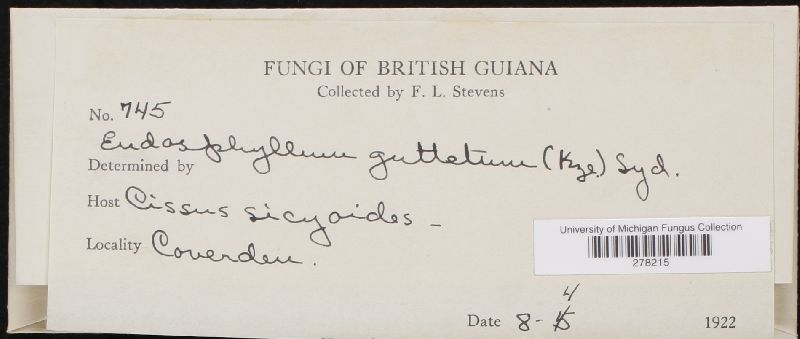 FUNGI OF BRITISH GUIANA
Collected by F. L. Stevens
No. 745
Endosphyllum guttatum (Kze.) Syd.
Determined by
Host Cissus sicyoides -
Locality Coverden.
University of Michigan Fungus Collection
278215
4
Date 8-5 1922